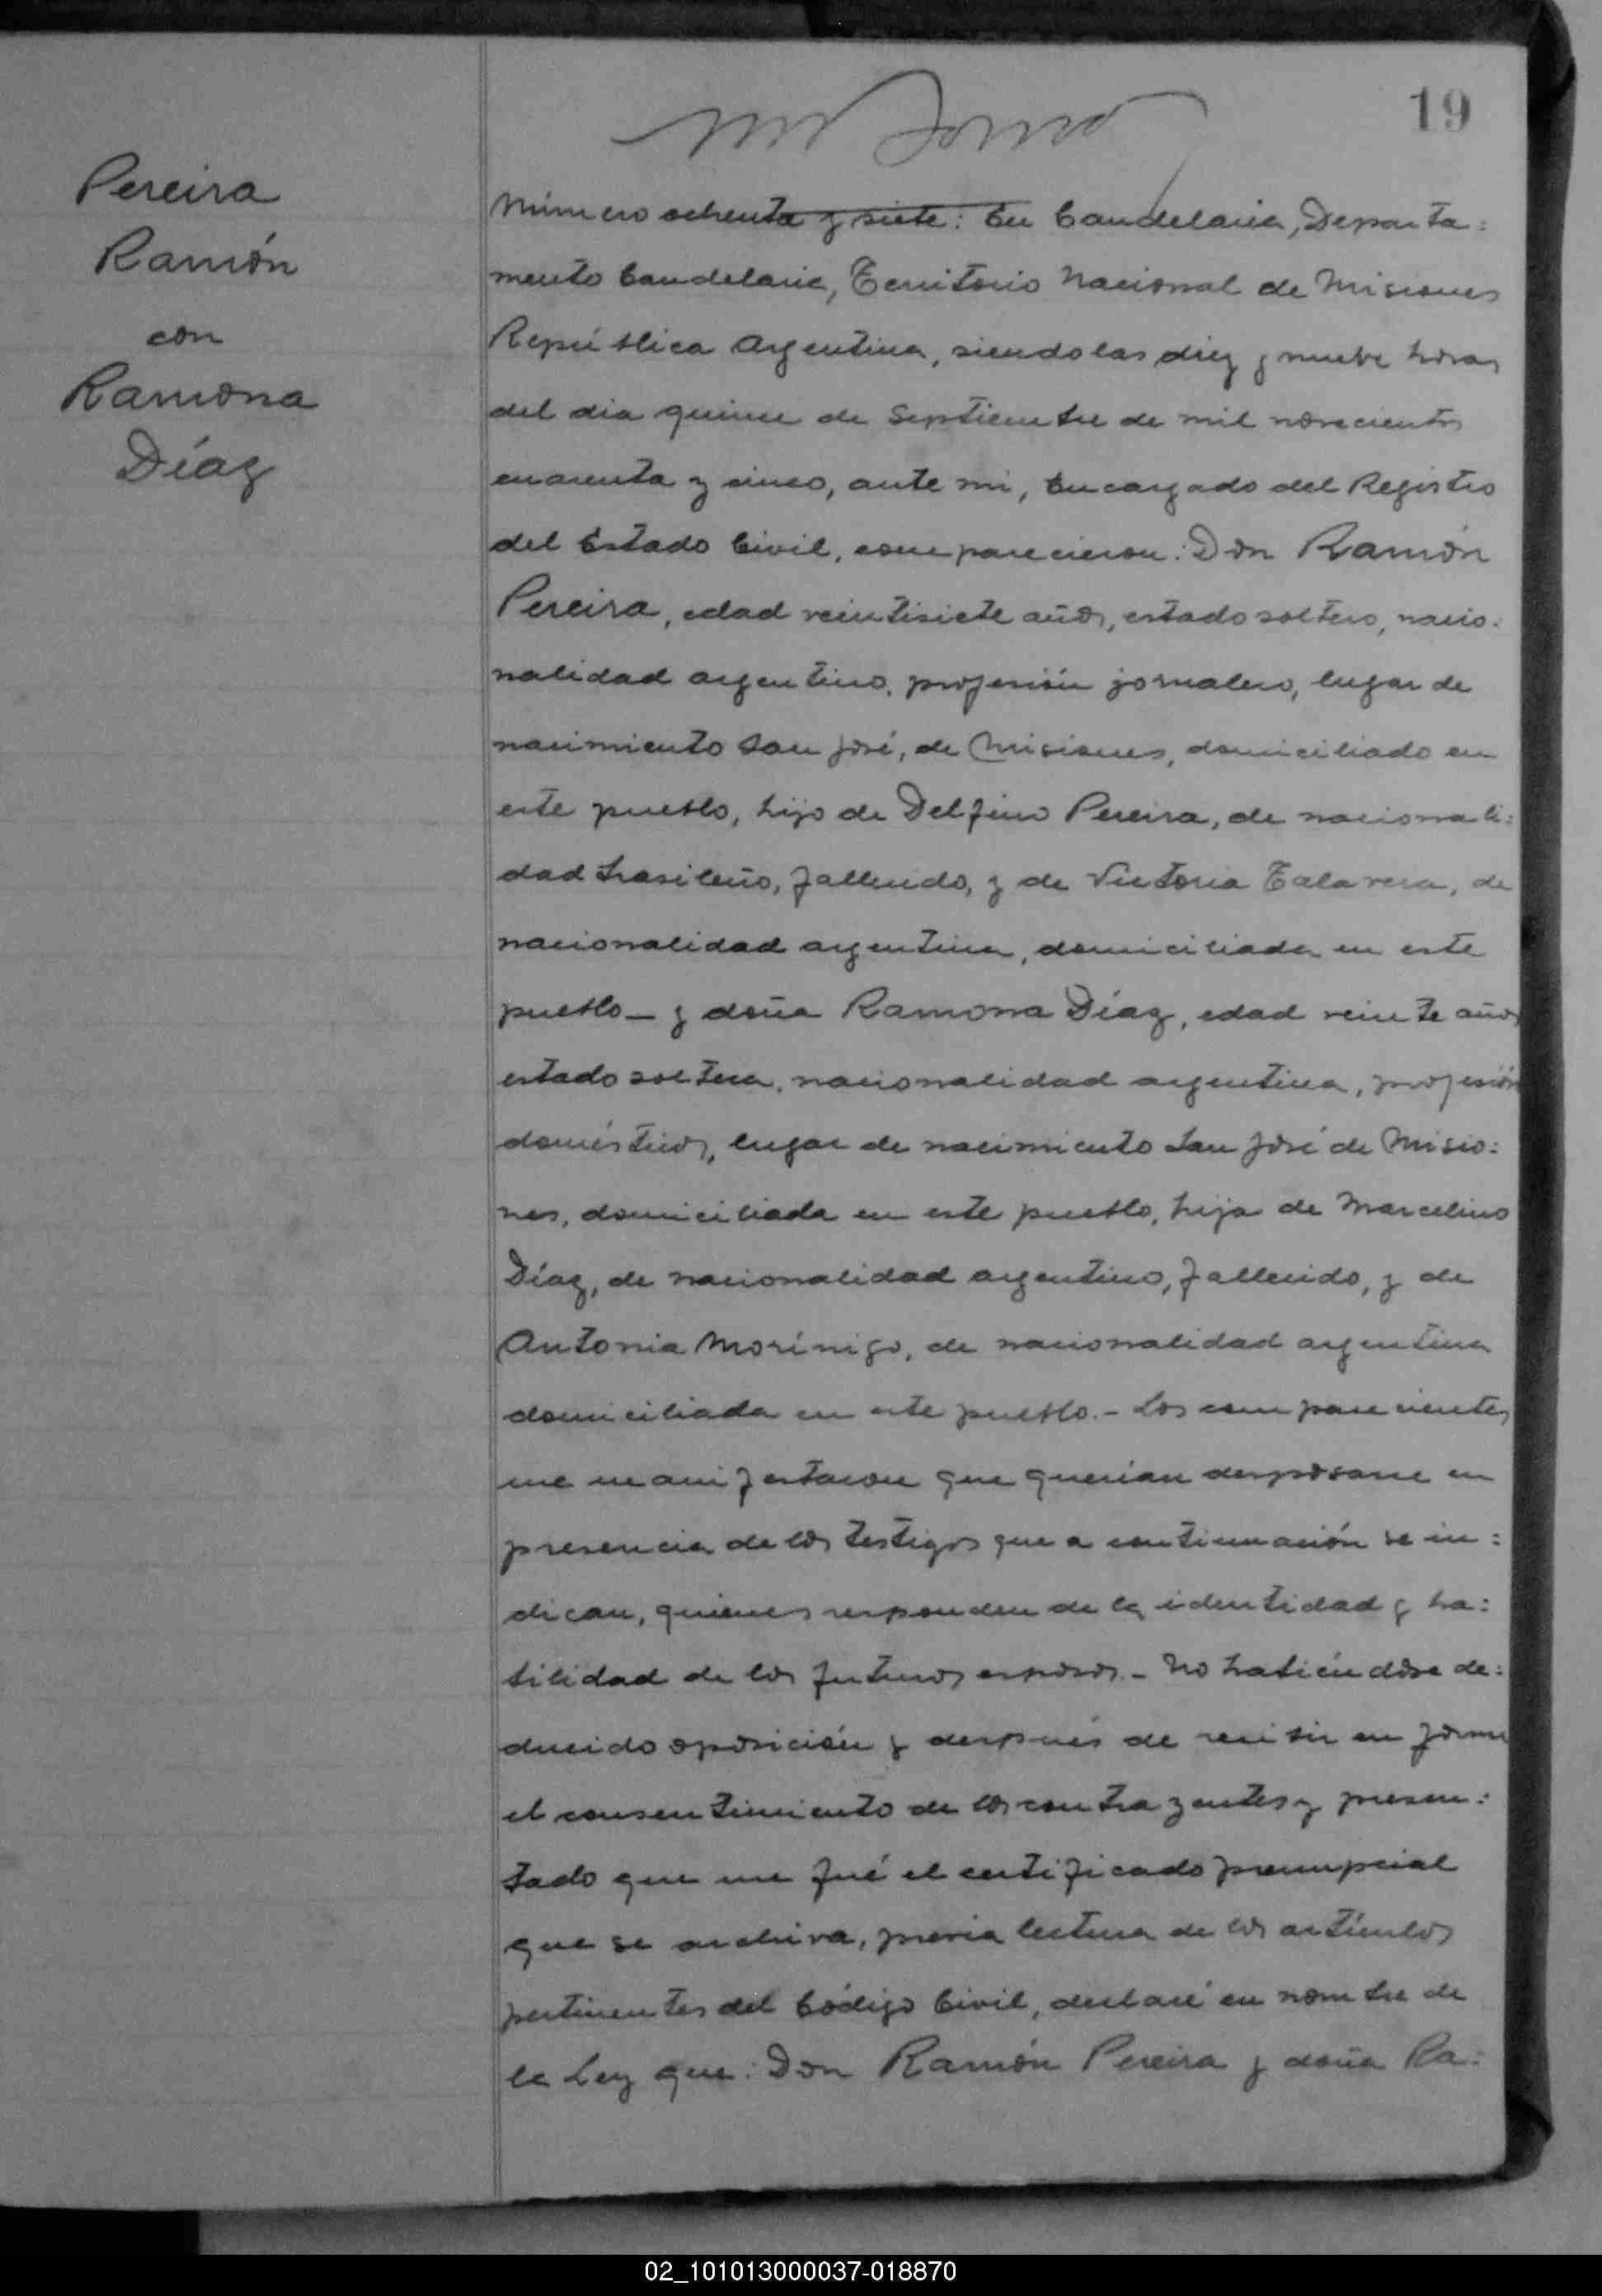 19
Pereira
Ramón
con
Ramona
Díaz
Número ochenta y siete: En Candelaria, Departa:
mento Candelaria, Territorio Nacional de Misiones
República Argentina, siendo las diez y nueve horas
del dia quince de Septiembre de mil novecientos
cuarenta y cinco, ante mi, Encargado del Registro
del Estado Civil, comparecieron: Don Ramón
Pereira, edad veintisiete años, estado soltero, nacio:
nalidad argentino, profesión jornalero, lugar de
nacimiento San José, de Misiones, domiciliado en
este pueblo, hijo de Delfino Pereira, de nacionali:
dad brasileño, fallecido, y de Victoria Talavera, de
nacionalidad argentina, domiciliada en este
pueblo - y doña Ramona Díaz, edad veinte años
estado soltera, nacionalidad argentina, profesión
domésticos, lugar de nacimiento San José de Misio:
nes, domiciliada en este pueblo, hija de Marcelino
Díaz, de nacionalidad argentino, fallecido, y de
Antonia Morínigo, de nacionalidad argentina
domiciliada en este pueblo. - Los comparecientes
me manifestaron que querían desposarse en
presencia de los testigos que a continuación se in:
dican, quienes responden de la identidad y ha:
bilidad de los futuros esposos. - No habiéndose de:
ducido oposición y después de recibir en forma
el consentimiento de los contrayentes y presen:
tado que me fué el certificado prenupcial
que se archiva, previa lectura de los artículos
pertinentes del Código Civil, declaré en nombre de
la Ley que: Don Ramón Pereira y doña Ra:
02_101013000037-018870